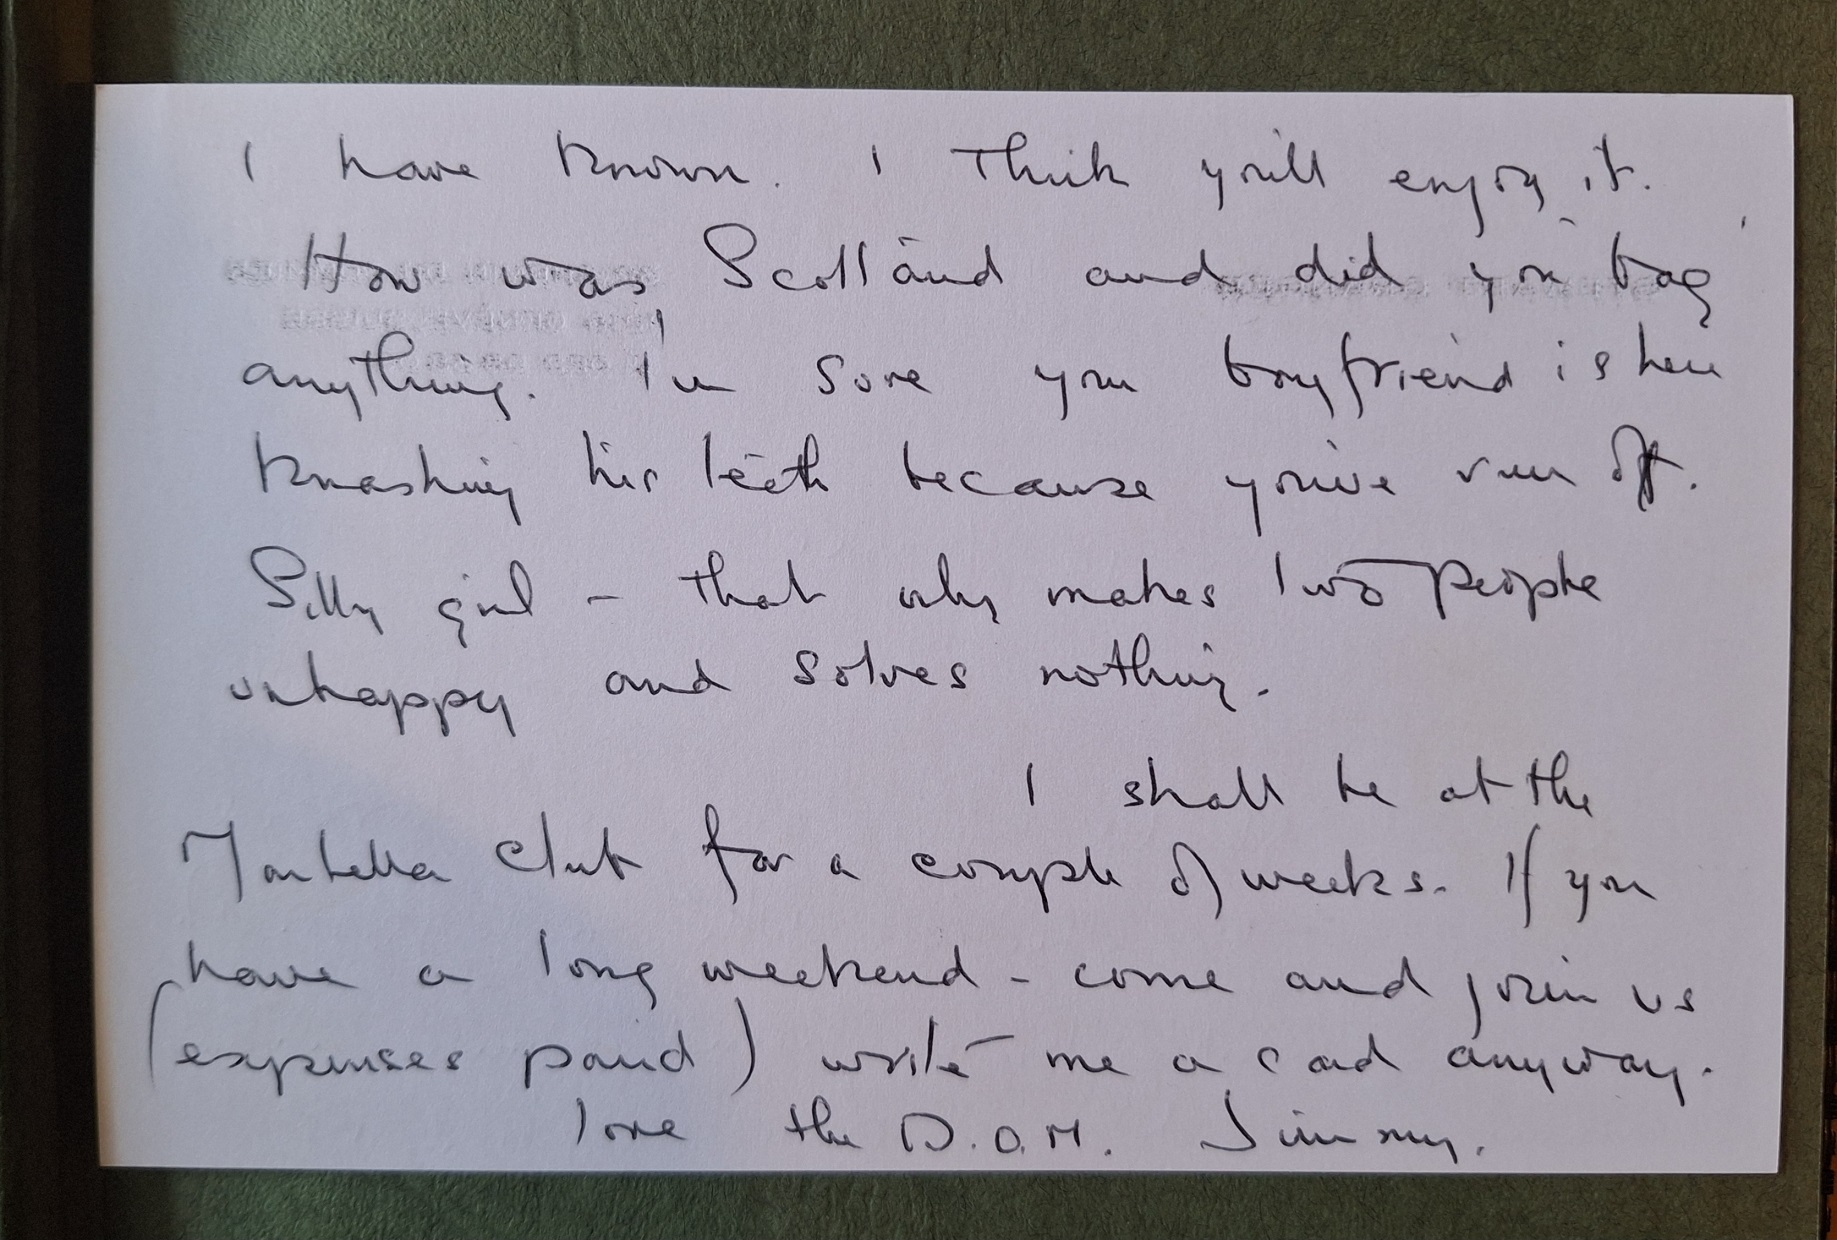 I have known. I think you'll enjoy it.
How was Scotland and did you bag
anything. I'm sure your boyfriend is here
knashing his teeth because you've run off.
Silly girl – that only makes two people
unhappy and solves nothing.
I shall be at the
Marbella Club for a couple of weeks. If you
have a long weekend – come and join us
(expenses paid) write me a card anyway.
love the D.O.M. Jimmy.